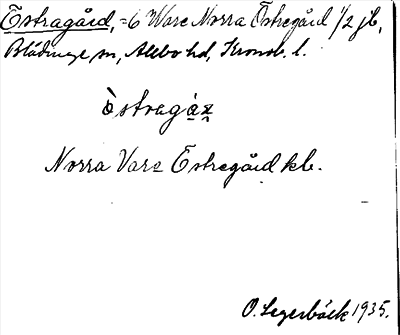 Östragård, = 6 Ware Norra Östregård 1/2 jb,
Blädinge sn, Allbo hd, Kronob. l.
Östragáʀ
Norra Vare Östregård kb.
O. Segerbäck 1935.